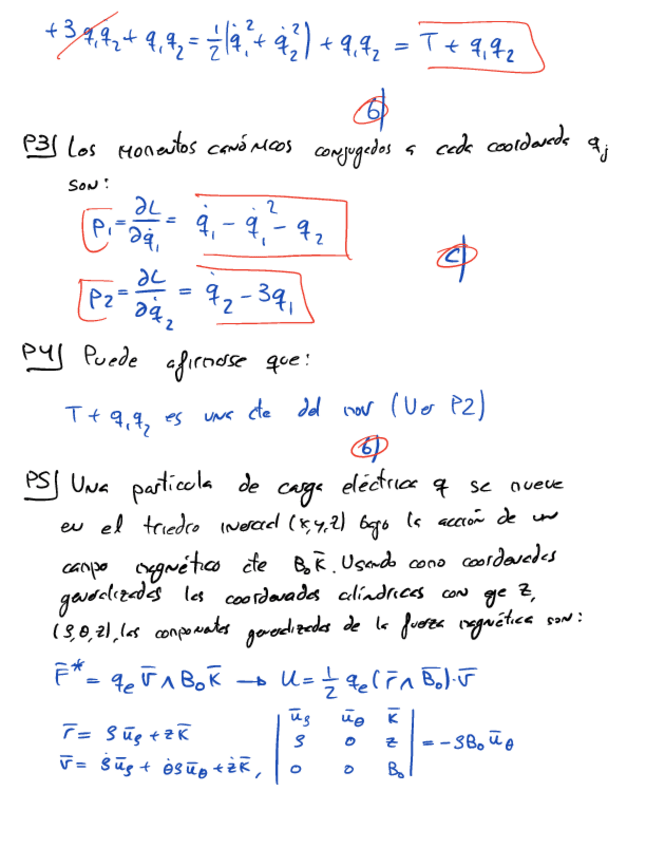 +3q₁q₂ + q₁q₂ = ½(q̇₁² + q̇₂²) + q₁q₂ = T + q₁q₂
b)
P3) Los momentos canónicos conjugados a cada coordenada qⱼ
son:
p₁ = ∂L/∂q̇₁ = q̇₁ - q̇₁² - q₂
c)
p₂ = ∂L/∂q̇₂ = q̇₂ - 3q₁
P4) Puede afirmarse que:
T + q₁q₂ es una cte del mov (Ver P2)
b)
P5) Una partícula de carga eléctrica q se mueve
en el triedro inercial (x,y,z) bajo la acción de un
campo magnético cte B₀k̄. Usando como coordenadas
generalizadas las coordenadas cilíndricas con eje z,
(ρ,θ,z), las componentes generalizadas de la fuerza magnética son:
F̄* = qₑ v̄ ∧ B₀k̄ → U = ½ qₑ(r̄ ∧ B̄₀)·v̄
r̄ = ρūρ + zk̄
v̄ = ρ̇ūρ + θ̇ρūθ + żk̄, |ūρ ūθ k̄; ρ 0 z; 0 0 B₀| = -ρB₀ūθ